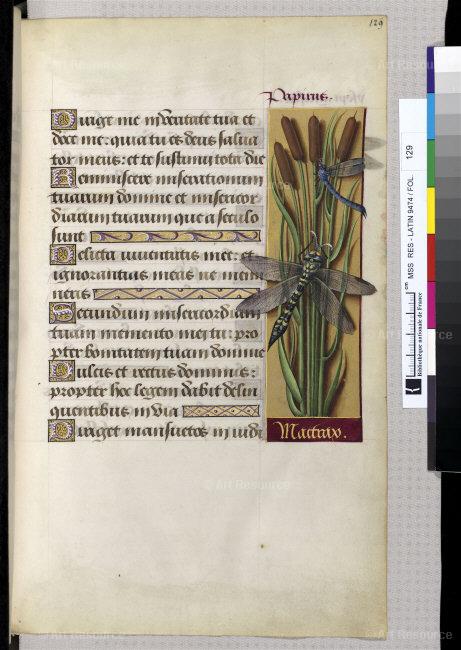 129
Papirus.
Dirige me in veritate tua et
doce me: quia tu es deus salva
tor meus: et te sustinui tota die
Reminiscere miserationum
tuarum domine et misericor
diarum tuarum que a seculo
sunt
Delicta iuventutis mee: et
ignorantias meas ne memi
neris
Secundum misericordiam
tuam memento mei tu: pro
pter bonitatem tuam domine
Dulcis et rectus dominus:
propter hoc legem dabit delin
quentibus in via
Diriget mansuetos in iudi
Mactrax.
MSS RES - LATIN 9474 / FOL. 129
Bibliothèque nationale de France
cm
© Art Resource